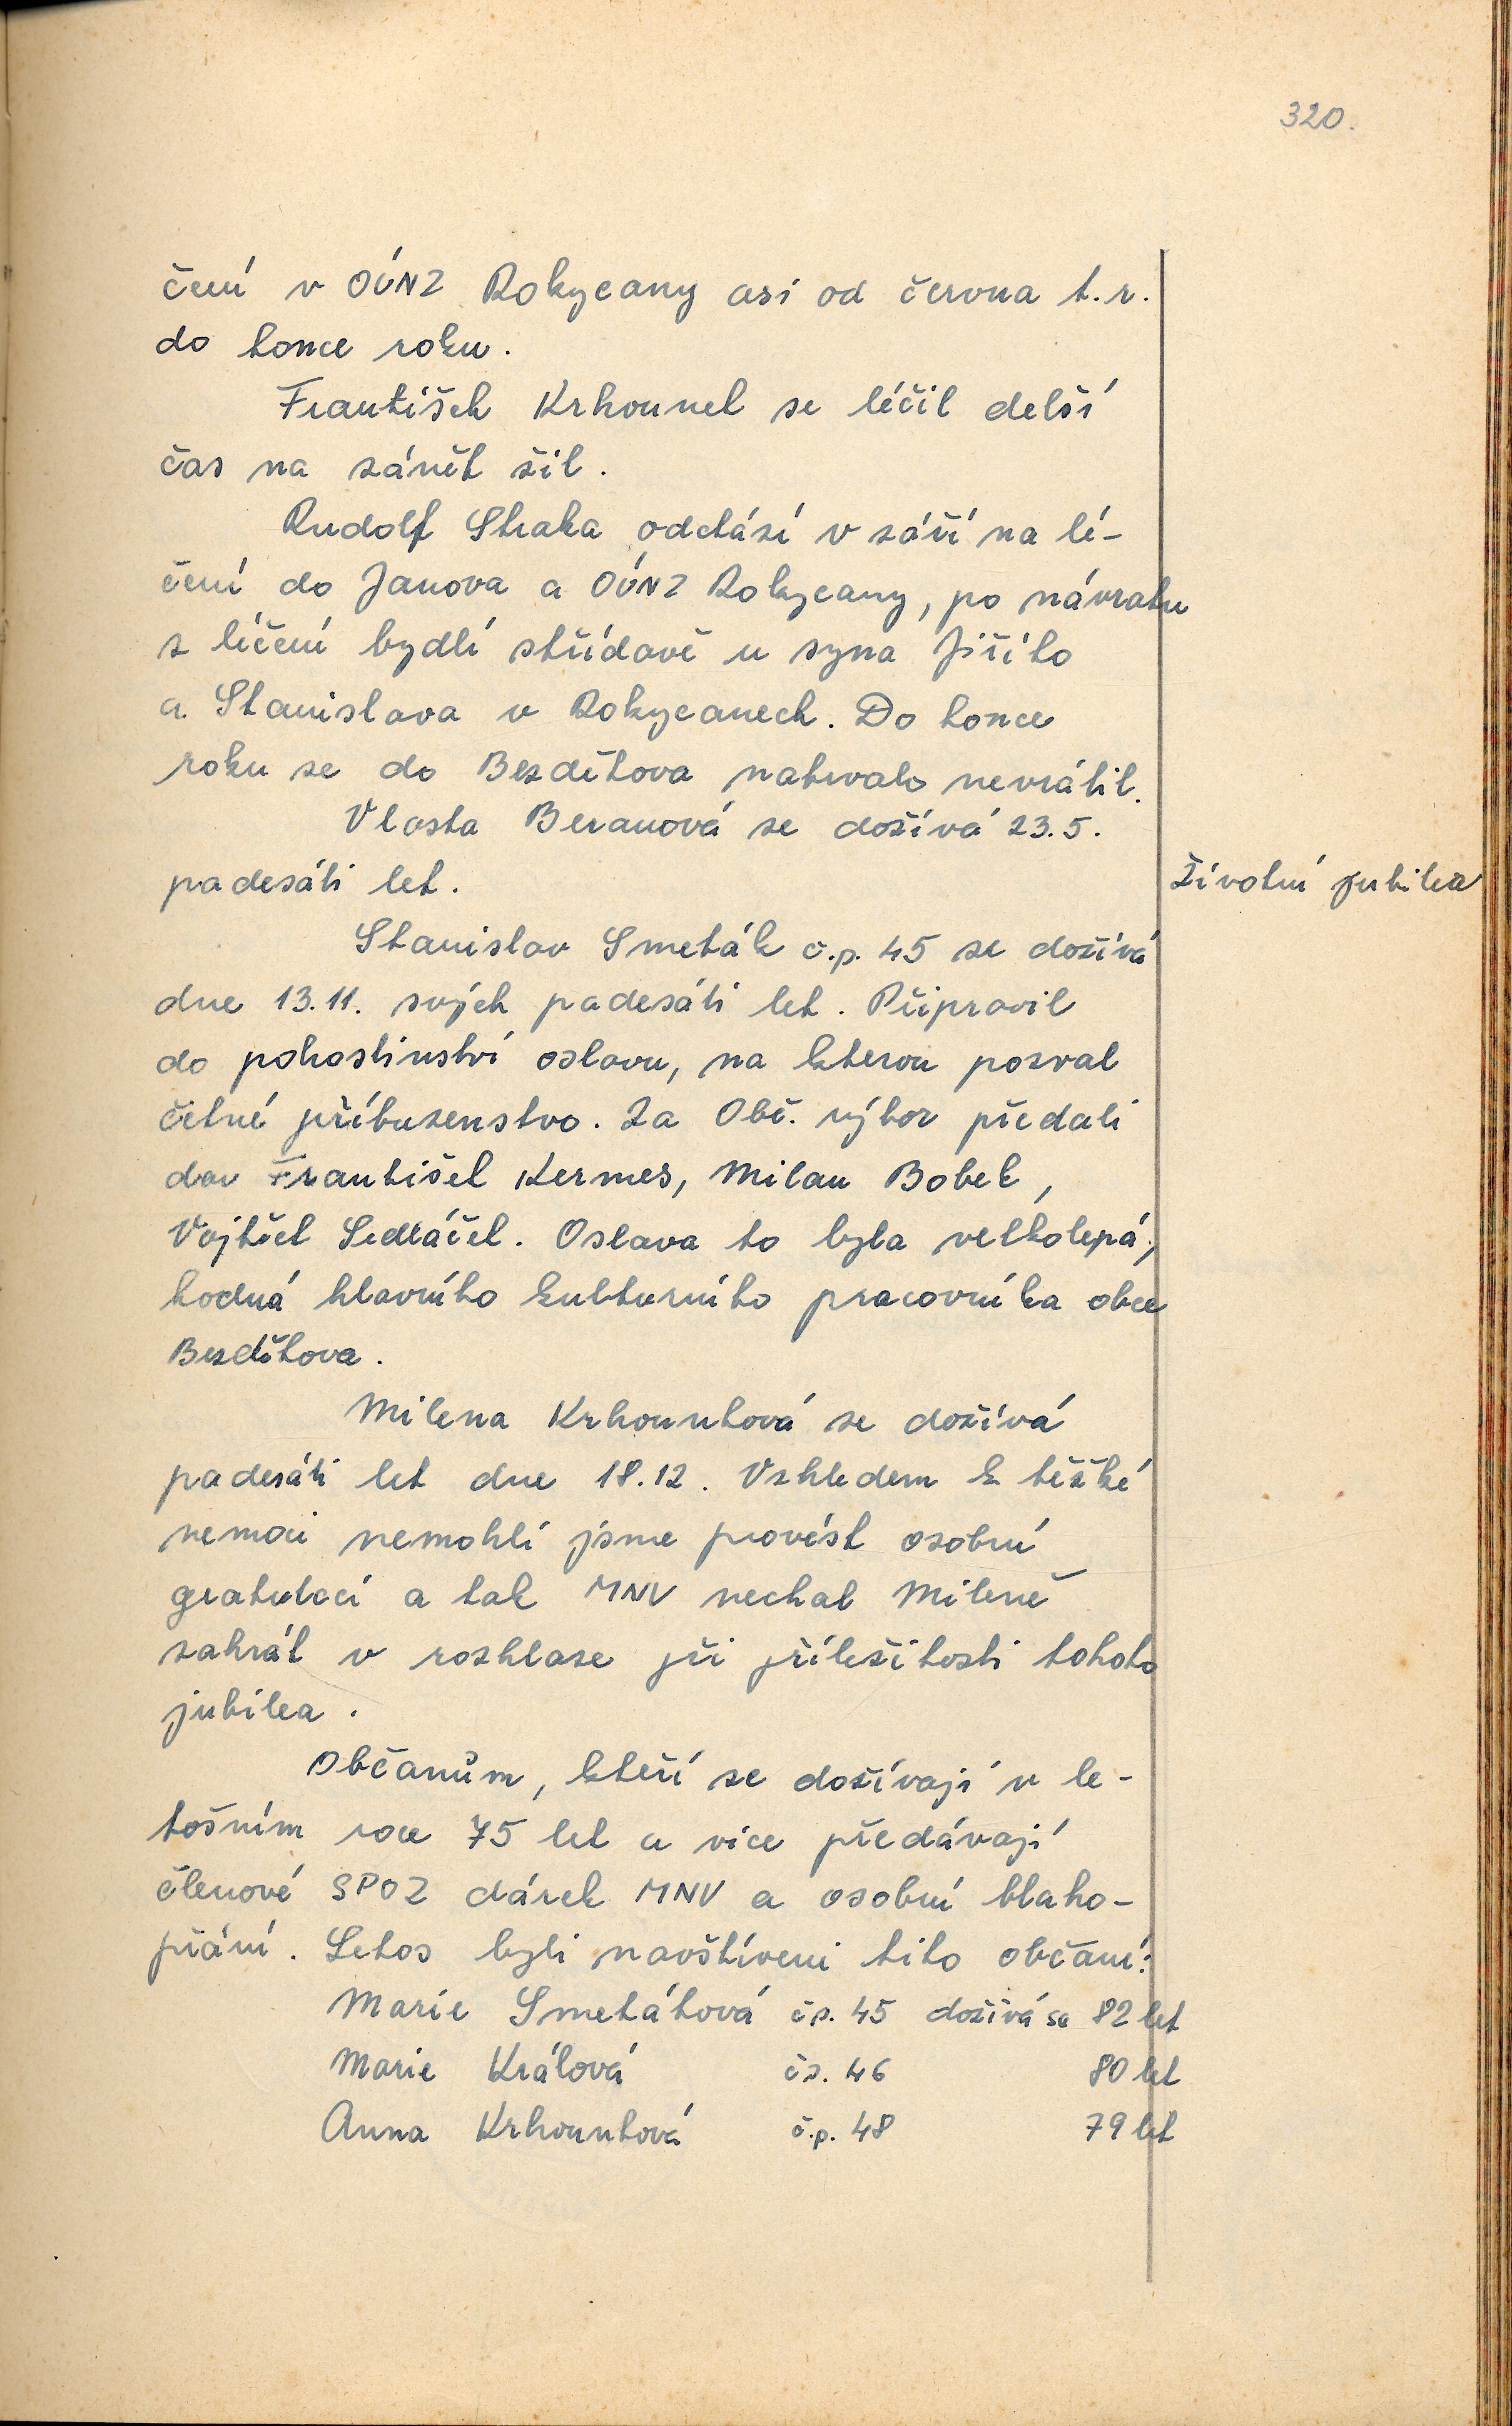 320.
čení v OÚNZ Rokycany asi od června t.r.
do konce roku.
František Krhounek se léčil delší
čas na zánět žil.
Rudolf Straka odchází v září na lé-
čení do Janova a OÚNZ Rokycany, po návratu
z léčení bydlí střídavě u syna Jiřího
a Stanislava v Rokycanech. Do konce
roku se do Bezděkova natrvalo nevrátil.
Vlasta Beranová se dožívá 23.5.
padesáti let.
Životní jubilea
Stanislav Smeták č.p. 45 se dožívá
dne 13.11. svých padesáti let. Připravil
do pohostinství oslavu, na kterou pozval
četné příbuzenstvo. Za Obč. výbor předali
dar František Kermes, Milan Bobek,
Vojtěch Sedláček. Oslava to byla velkolepá,
hodná hlavního kulturního pracovníka obce
Bezděkova.
Milena Krhounková se dožívá
padesáti let dne 18.12. Vzhledem k těžké
nemoci nemohli jsme provést osobní
gratulaci a tak MNV nechal Mileně
zahrát v rozhlase při příležitosti tohoto
jubilea.
Občanům, kteří se dožívají v le-
tošním roce 75 let a více předávají
členové SPOZ dárek MNV a osobní blaho-
přání. Letos byli navštíveni tito občané:
Marie Smetáková čp. 45 dožívá se 82 let
Marie Králová čp. 46 80 let
Anna Krhounková č.p. 48 79 let